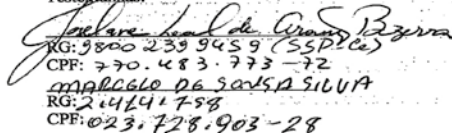 Testemunhas:
Joselane Leal de Araújo Bezerra
RG: 9800 239 9459 (SSP-Ce)
CPF: 770.483.773-72
MARCELO DE SOUSA SILVA
RG: 2.414.758
CPF: 023.728.903-28